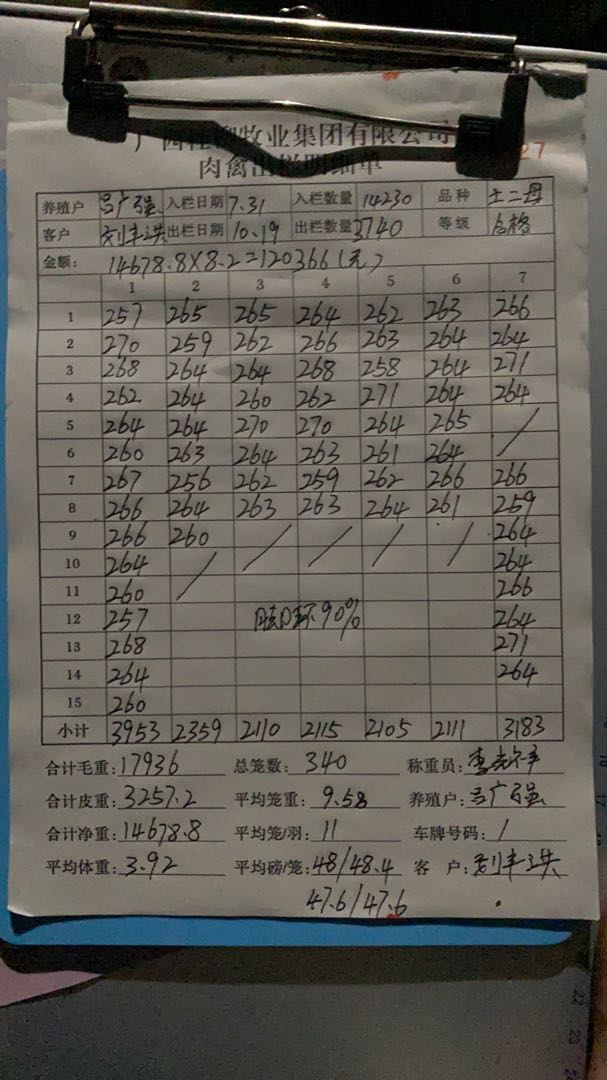 广西桂柳牧业集团有限公司
肉禽出栏明细单
27
养殖户 吕广强 入栏日期 7.31 入栏数量 14230 品种 土二母
客户 出栏日期 10.19 出栏数量 3740 等级 合格
金额: 14678.8×8.2=120366(元)
1 2 3 4 5 6 7
1 257 265 265 264 262 263 266
2 270 259 262 266 263 264 264
3 268 264 264 268 258 264 271
4 262 264 260 262 271 264 264
5 264 264 270 270 264 265 /
6 260 263 264 263 261 264
7 267 256 262 259 262 266 266
8 266 264 263 263 264 261 259
9 266 260 / / / / 264
10 264 / 264
11 260 266
12 257 环90% 264
13 268 271
14 264 264
15 260
小计 3953 2359 2110 2115 2105 2111 3183
合计毛重: 17936 总笼数: 340 称重员:
合计皮重: 3257.2 平均笼重: 9.58 养殖户: 吕广强
合计净重: 14678.8 平均笼/羽: 11 车牌号码: /
平均体重: 3.92 平均磅/笼: 48/48.4 客 户:
47.6/47.6
22
23